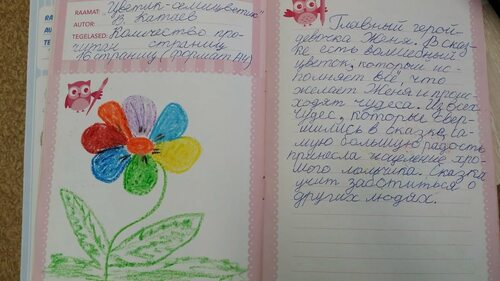 RAAMAT: "Цветик-семицветик"
AUTOR: В Катаев
TEGELASED: Количество про-
читан страниц
16 страниц (формат А4)
Главный герой-
девочка Женя. В сказ-
ке есть волшебный
цветок, который ис-
полняет всё, что
желает Женя и проис-
ходят чудеса. Из всех
чудес, которые свер-
шились в сказке, са-
мую большую радость
принесла исцеление хро-
мого мальчика. Сказка
учит заботиться о
других людях.